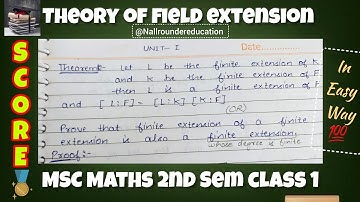 Theory of Field Extension
@Nallroundereducation
UNIT- I
Date
Theorem:- Let L be the finite extension of K
and K be the finite extension of F
then L is a finite extension of F
and [L:F] = [L:K] [K:F]
(OR)
Prove that finite extension of a finite
extension is also a finite extension.
whose degree is finite
Proof:-
SCORE
In
Easy
Way 💯
MSC Maths 2nd Sem Class 1